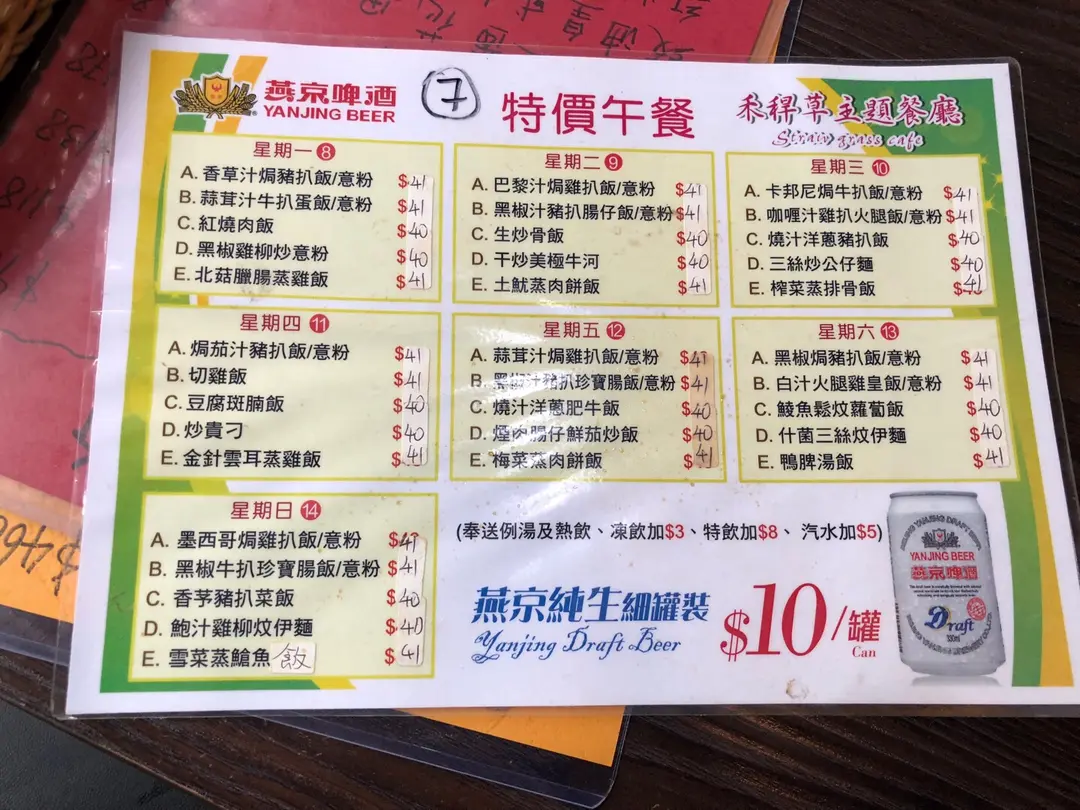 燕京啤酒
YANJING BEER
7
特價午餐
禾稈草主題餐廳
Straw grass cafe
星期一 8
A. 香草汁焗豬扒飯/意粉 $41
B. 蒜茸汁牛扒蛋飯/意粉 $41
C. 紅燒肉飯 $40
D. 黑椒雞柳炒意粉 $40
E. 北菇臘腸蒸雞飯 $41
星期二 9
A. 巴黎汁焗雞扒飯/意粉 $41
B. 黑椒汁豬扒腸仔飯/意粉 $41
C. 生炒骨飯 $40
D. 干炒美極牛河 $40
E. 土魷蒸肉餅飯 $41
星期三 10
A. 卡邦尼焗牛扒飯/意粉 $41
B. 咖喱汁雞扒火腿飯/意粉 $41
C. 燒汁洋蔥豬扒飯 $40
D. 三絲炒公仔麵 $40
E. 榨菜蒸排骨飯 $41
星期四 11
A. 焗茄汁豬扒飯/意粉 $41
B. 切雞飯 $41
C. 豆腐斑腩飯 $40
D. 炒貴刁 $40
E. 金針雲耳蒸雞飯 $41
星期五 12
A. 蒜茸汁焗雞扒飯/意粉 $41
B. 黑椒汁豬扒珍寶腸飯/意粉 $41
C. 燒汁洋蔥肥牛飯 $40
D. 煙肉腸仔鮮茄炒飯 $40
E. 梅菜蒸肉餅飯 $41
星期六 13
A. 黑椒焗豬扒飯/意粉 $41
B. 白汁火腿雞皇飯/意粉 $41
C. 鯪魚鬆炆蘿蔔飯 $40
D. 什菌三絲炆伊麵 $40
E. 鴨脾湯飯 $41
星期日 14
A. 墨西哥焗雞扒飯/意粉 $41
B. 黑椒牛扒珍寶腸飯/意粉 $41
C. 香芧豬扒菜飯 $40
D. 鮑汁雞柳炆伊麵 $40
E. 雪菜蒸鯧魚飯 $41
(奉送例湯及熱飲、凍飲加$3、特飲加$8、汽水加$5)
燕京純生細罐裝
Yanjing Draft Beer
$10/罐
Can
YANJING DRAFT BEER
YANJING BEER
燕京啤酒
Draft
330ml